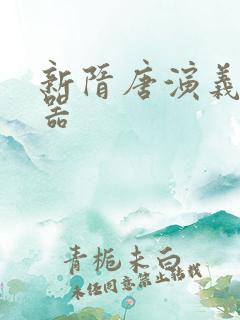 新隋唐演义
器
青栀未白
未经同意禁止转载